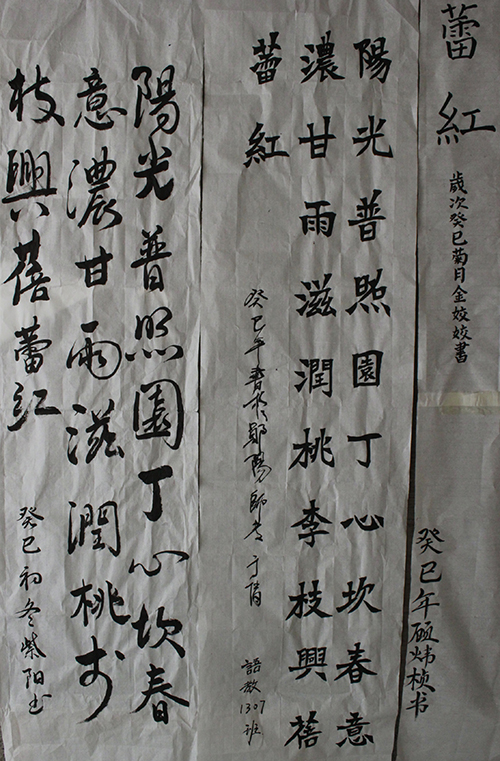 蕾紅
歲次癸巳菊月金姣姣書
癸巳年硕炜桢书
陽光普照園丁心坎春意
濃甘雨滋潤桃李枝興蓓
蕾紅
癸巳年春於鄖陽師专
語教1307班
陽光普照園丁心坎春
意濃甘雨滋潤桃李
枝興蓓蕾红
癸巳初冬紫阳书